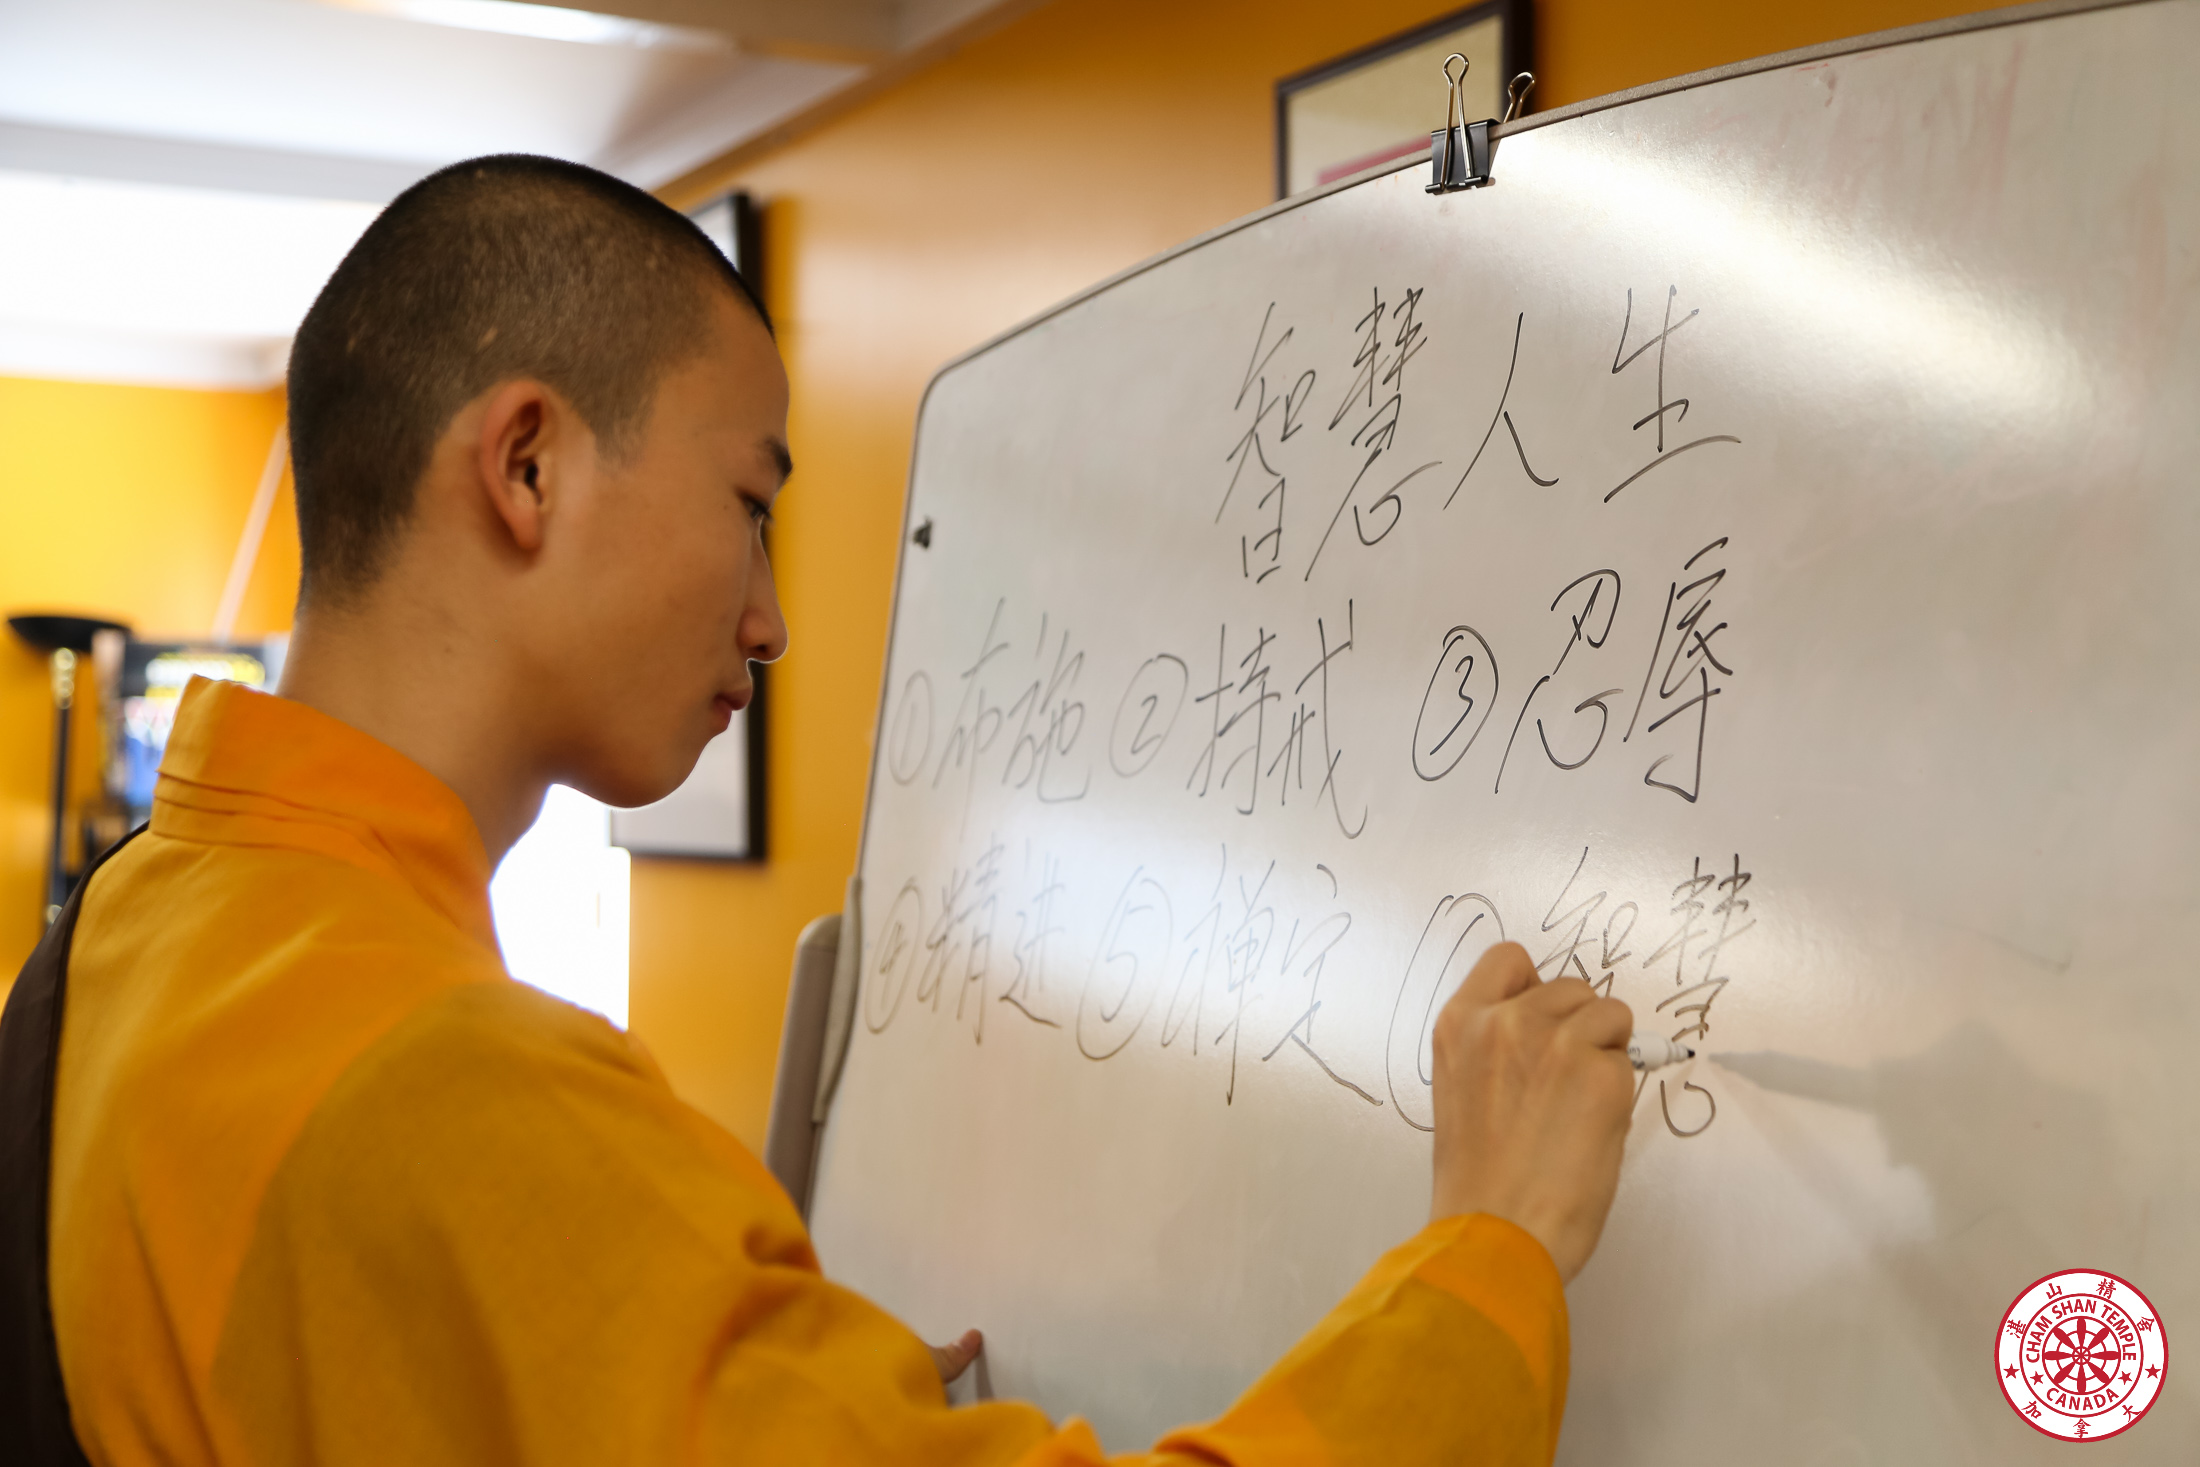 智慧人生
①布施 ②持戒 ③忍辱
④精进 ⑤禅定 ⑥智慧
湛山精舍
CHAM SHAN TEMPLE
CANADA
加拿大